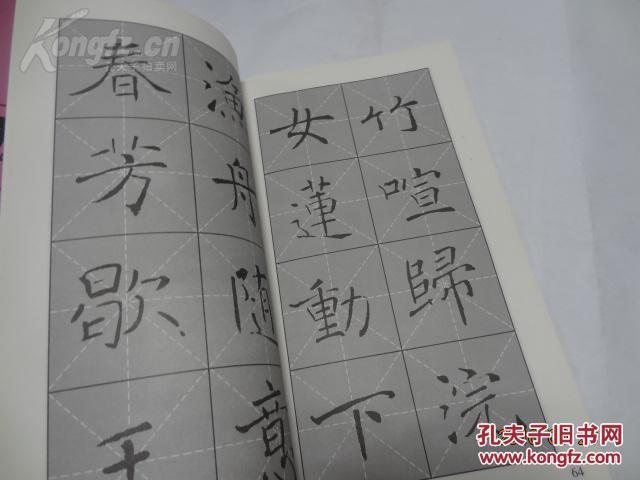 竹喧歸浣
女蓮動下
漁舟隨意
春芳歇王
64
Kongfz.cn
孔夫子拍卖网
孔夫子旧书网
www.kongfz.com